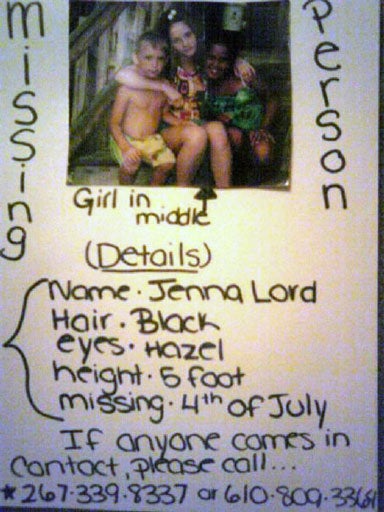 Missing
Person
Girl in
middle
(Details)
Name · Jenna Lord
Hair · Black
eyes · Hazel
height · 5 foot
missing · 4th of July
If anyone comes in
contact, please call...
* 267·339·8337 or 610·809·3364